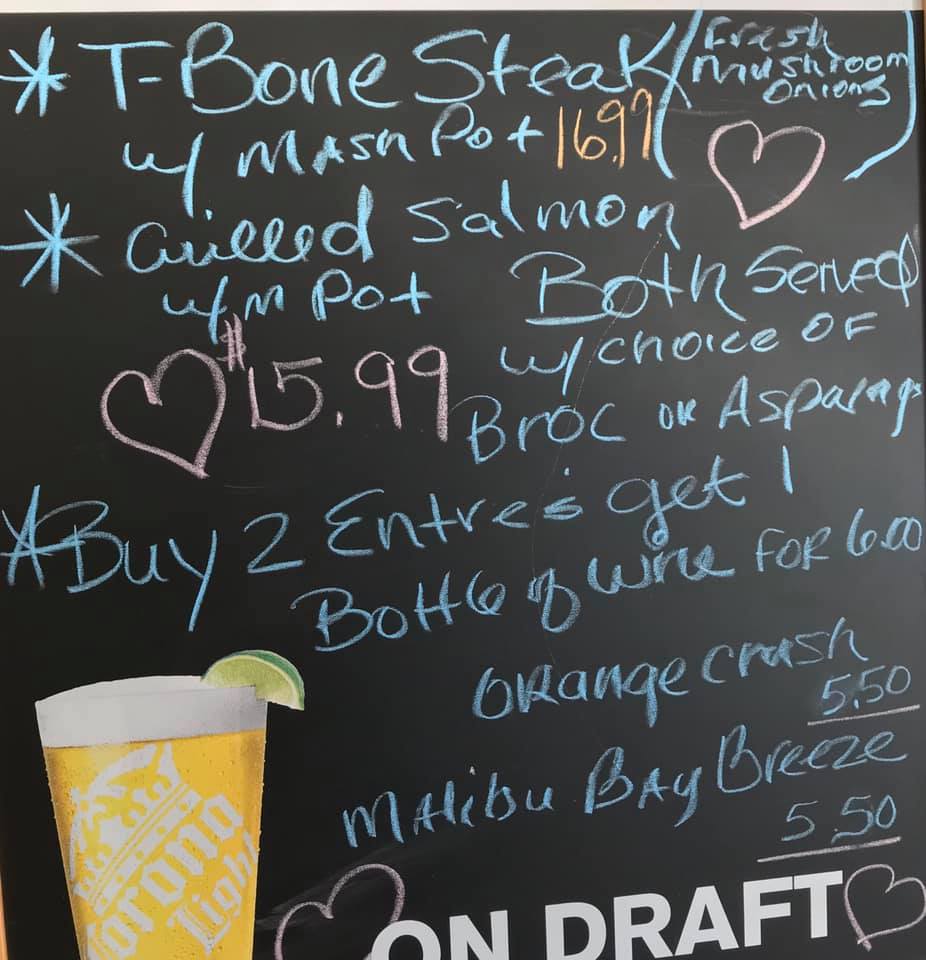 * T-Bone Steak (Fresh
Mushroom
Onions)
w/ Mash Pot 16.99
* Grilled Salmon
w/ M Pot
$15.99
Both Served
w/ choice OF
Broc or Asparagus
* Buy 2 Entre's get 1
Bottle of wine FOR 6.00
Orange crush
5.50
Malibu Bay Breeze
5.50
Corona
Light
ON DRAFT